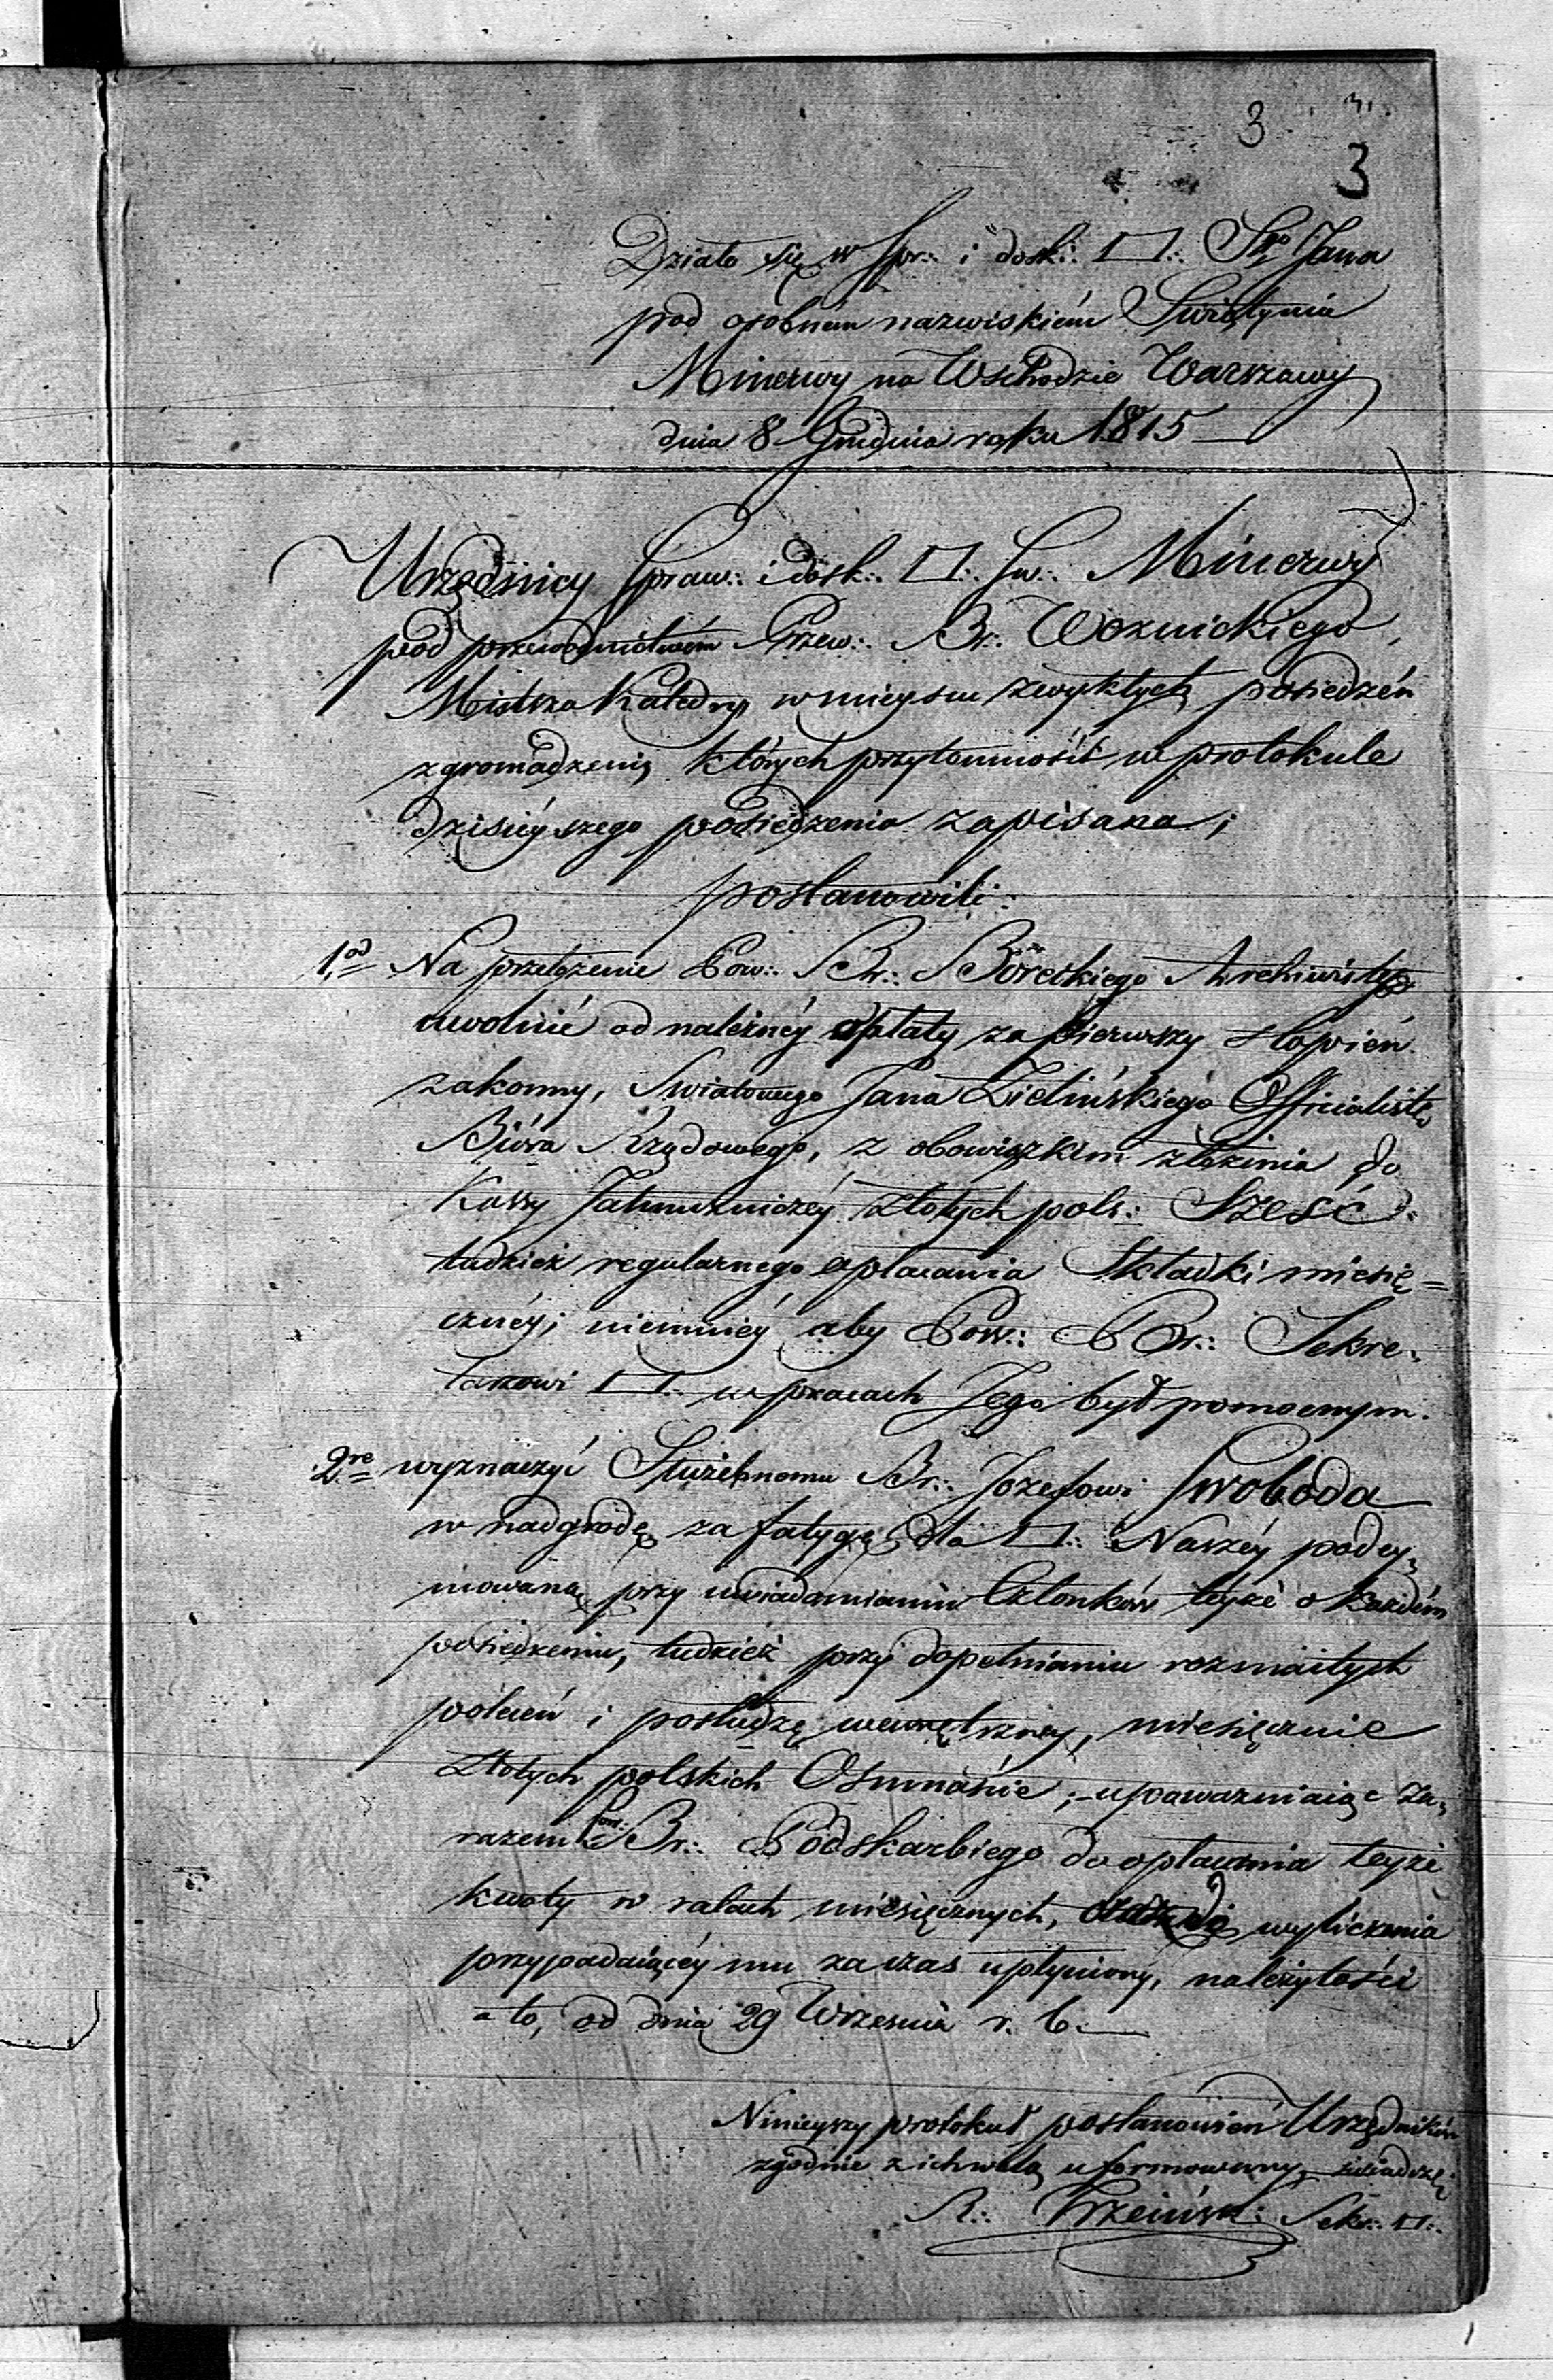 3 3.
3
Działo się w Spr.: i dosk.: □.: Sgo Jana
pod osobném nazwiskiém Swiątynia
Minerwy na Wschodzie Warszawy
dnia 8 Grudnia roku 1815
Urzędnicy Spraw.: i dosk.: □.: Sw.: Minerwy
pod przewodnictwem Przew.: Br.: Woznickiego
Mistrza Katedry w mieyscu zwykłych posiedzén
zgromadzeni, których przytomność w protokule
dzisieyszego posiedzenia zapisana;
postanowili:
1.od Na przełożenie Pow.: Br.: Boreckiego Archiwisty
uwolnić od należnéy opłaty za pierwszy stopień
zakonny, Swiatowego Jana Zielińskiego Officialistę
Biura Rządowego, z obowiązkiem złożenia do
Kassy Jałmużniczéy złotych pols.: Sześć
tudzież regularnego opłacania Składki miesię=
cznéy; niemniéy aby Pow.: Br.: Sekre.
tarzowi □.: w pracach Jego był pomocnym.
2re wyznaczyć Służebnemu Br.: Jozefowi Swoboda
w nadgrodę za fatygę dla □.: Naszéy podey,
mowaną przy uwiadamianiu Członków teyże o każdém
posiedzeniu, tudzież przy dopełnianiu rozmaitych
poleceń i posłudze wewnętrzney, miesięcznie
Złotych polskich Osmnaście; upoważniaiąc za,
razem Pow.: Br.: Podskarbiego do opłacania teyże
kwoty w ratach miesięcznych, wyliczenia
przypadaiącéy mu za czas upłyniony, należytości
a to, od dnia 29 Września r. b.
Ninieyszy protokuł postanowień Urzędników
zgodnie z ich wolą uformowany, świadczę
Sekr.: □.: